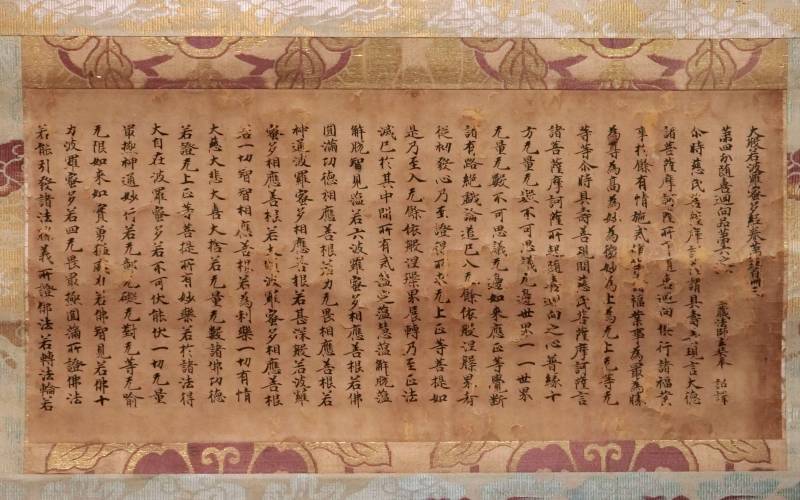 大般若波羅蜜多經卷第五百四十三
第四分隨喜迴向品第六之一 三藏法師玄奘奉 詔譯
尒時慈氏菩薩摩訶薩謂具壽善現言大德
諸菩薩摩訶薩所有隨喜迴向俱行諸福業
事於餘有情施戒修等諸福業事為最為勝
為尊為高為妙為微妙為上為无上无等无
等等尒時具壽善現問慈氏菩薩摩訶薩言
諸菩薩摩訶薩所起隨喜迴向之心普緣十
方无量无數不可思議无邊世界一一世界
无量无數不可思議无邊如來應正等覺斷
諸有路絕戲論道已入无餘依般涅槃界者
從初發心乃至證得所求无上正等菩提如
是乃至入无餘依般涅槃界展轉乃至正法
滅已於其中間所有戒蘊定蘊慧蘊解脫蘊
解脫智見蘊若六波羅蜜多相應善根若佛
圓滿功德相應善根若力无畏相應善根若
神通波羅蜜多相應善根若甚深般若波羅
蜜多相應善根若大願波羅蜜多相應善根
若一切智智相應善根若為利樂一切有情
大慈大悲大喜大捨若无量无數諸佛功德
若證无上正等菩提所有妙樂若於諸法得
大自在波羅蜜多若不可伏能伏一切无量
最極神通妙行若无鄣无礙无對无等无喻
无限如來如實勇猛威力若佛智見若佛十
力波羅蜜多若四无畏最極圓滿所證佛法
若能引發諸法勝義所證佛法若轉法輪若